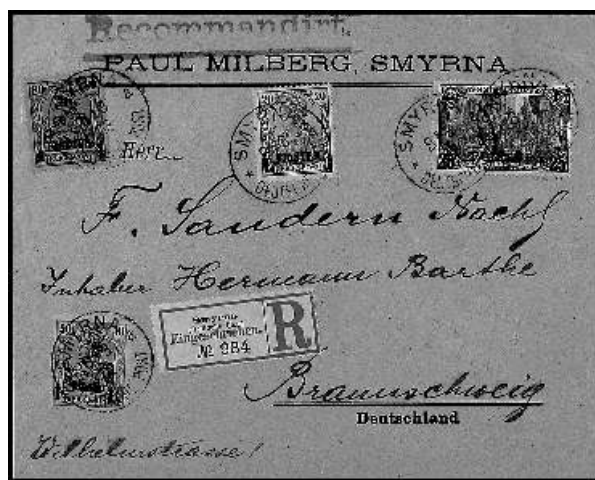 Recommandirt.
PAUL MILBERG, SMYRNA
SMYRNA
Herrn
F. Sandern Nachf
Inhaber Hermann Barthe
Smyrna
Eingeschrieben.
№ 984
R
Braunschweig
Deutschland
Wilhelmstrasse 1